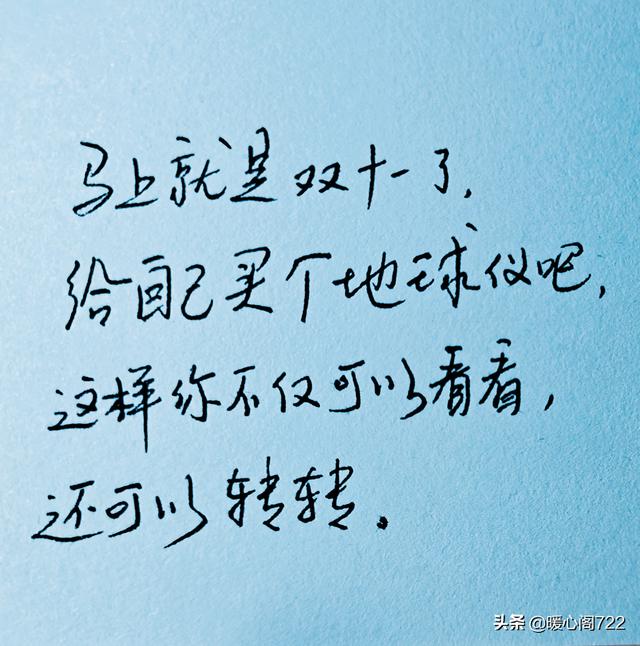 马上就是双十一了，
给自己买个地球仪吧，
这样你不仅可以看看，
还可以转转。
头条 @暖心阁722